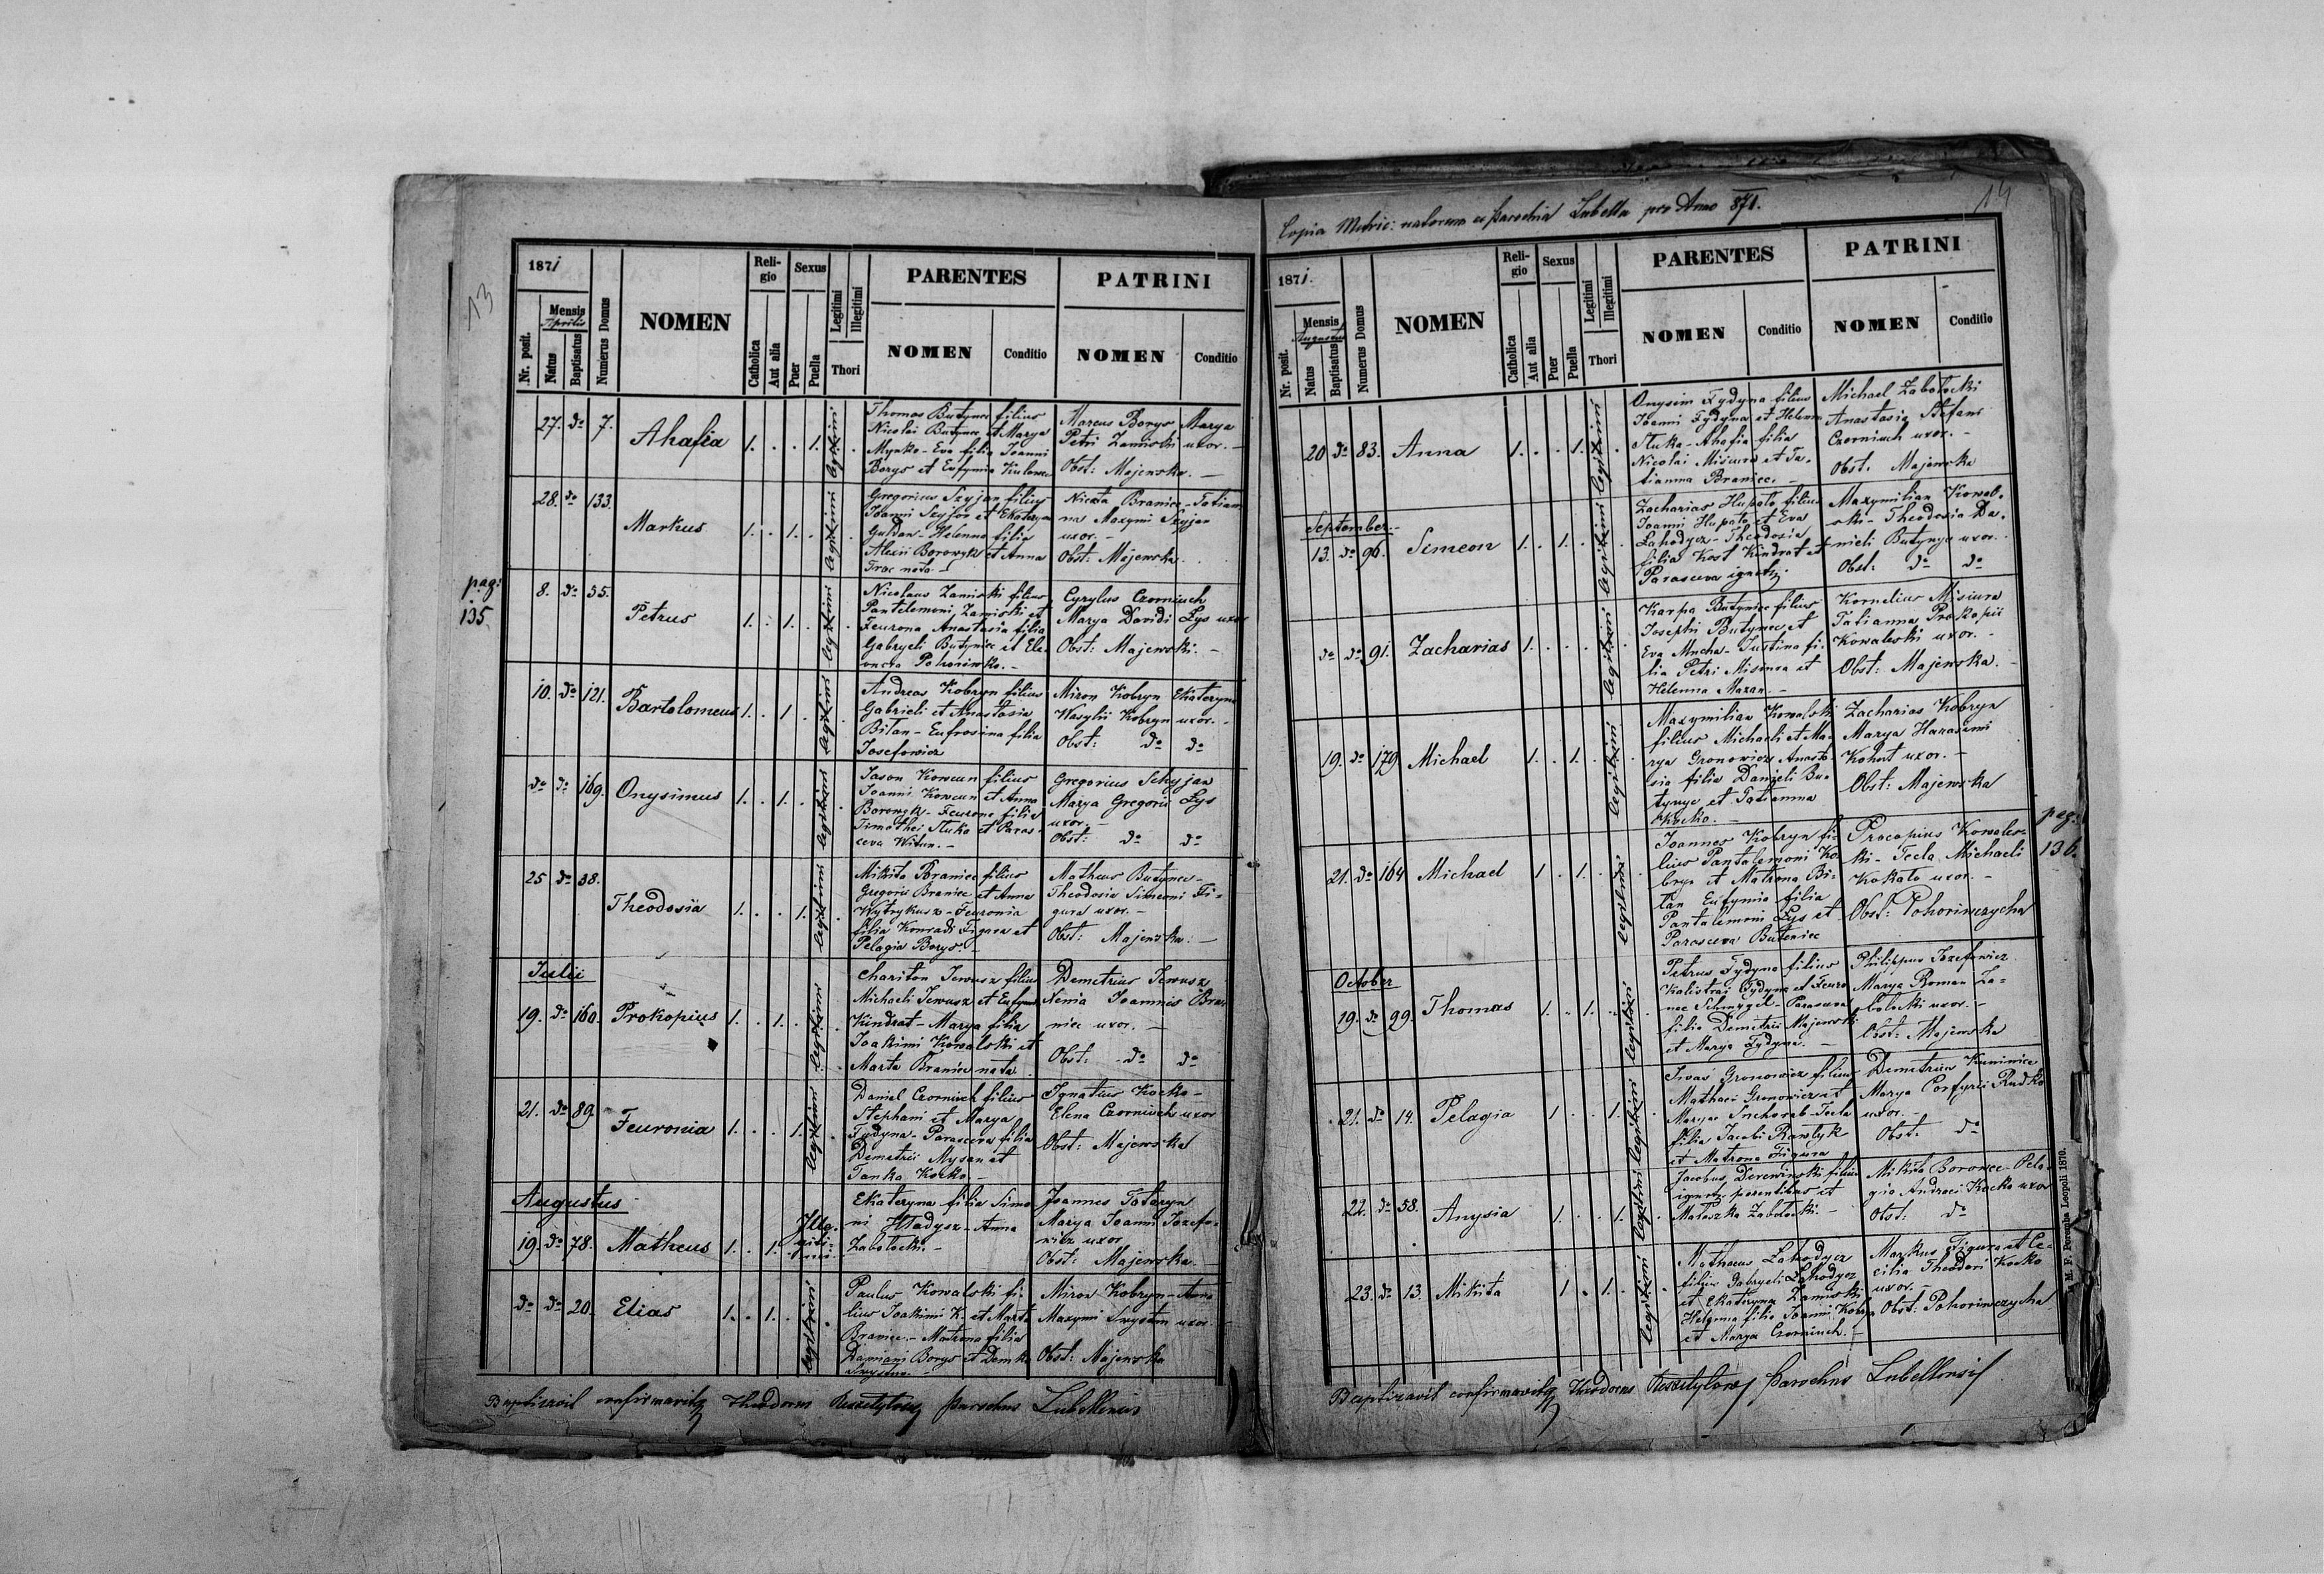 13
1871
Nr. posit.
Mensis
Aprilis
Natus
Baptisatus
Numerus Domus
NOMEN
Religio
Catholica
Aut alia
Sexus
Puer
Puella
Legitimi
Illegitimi
Thori
PARENTES
NOMEN
Conditio
PATRINI
NOMEN
Conditio
27. do 7. Ahafia 1. . . 1. legitimi
Thomas Butynec filius
Nicolai Butynec et Marya
Mynko - Eva filia Joanni
Borys et Eufymia
Marcus Borys Marya
Petri Zaminski uxor. -
Obst: Majewska. -
28. do 133. Markus 1. . 1. . legitimi
Gregorius Szyjan filius
Joanni Szyjan et Ekateryna
Guldan - Helenna filia
Alexii Borowyk et Anna
nata. -
Nicita Braniec - Tatian-
na Maxymi Szyjan
uxor. -
Obst: Majewska.
pag:
135.
8. do 55. Petrus 1. . 1. . legitimi
Nicolaus Zaminski filius
Pantelemoni Zaminski et
Feurona Anastasia filia
Gabryeli Butyniec et Ele-
onora
Cyrylus Czorniuch
Marya Davidi Lys uxor
Obst: Majewski. -
10. do 121. Bartolomeus 1. . 1 . legitimi
Andreas Kobryn filius
Gabrieli et Anastasia
Bitan - Eufrosina filia
Josefowicz
Miron Kobryn Ekateryna
Wasylii Kobryn uxor. -
Obst: do do
do do 169. Onysimus 1. . 1. . legitimi
Jason Kowcun filius
Joanni Kowcun et Anna
Borowyk - Feurona filia
Timothei Stuka et Paras-
ceva Witun. -
Gregorius Schyjan
Marya Gregorii Lys
uxor. -
Obst: do do
25 do 38. Theodosia 1. . . 1. legitimi
Mikita Braniec filius
Gregorii Braniec et Anna
Wytrykusz - Feuronia
filia Konradi Figura et
Pelagia Borys -
Matheus Butynec -
Theodosia Simeoni Fi-
gura uxor. -
Obst: Majewska: -
Julii
19. do 160. Prokopius 1. . 1. . legitimi
Chariton Jewusz filius
Michaeli Jewusz et Eufym
Kindrat - Marya filia
Joakimi Kowalski et
Marta Braniec nata
Demetrius Jewusz
Nenia Joannis Bra-
niec uxor. -
Obst: do do
21. do 89. Feuronia 1. . . 1. legitimi
Daniel Czorniuch filius
Stephani et Marya
Fydyna - Parasceva filia
Demetrii Mysan et
Tanka Kocko. -
Ignatius Kocko -
Elena Czorniuch uxor
Obst: Majewska
Augustus
19. do 78. Matheus 1. . 1. Illegitimi
Ekateryna filia Simo
ni Hladysz - Anna
Zabolocki. -
Joannes Tataryn
Marya Joanni Jozefo-
wicz uxor
Obst: Majewska -
do do 20. Elias 1. . 1. . legitimi
Paulus Kowalski fi-
lius Joakimi K. et Marta
Braniec. - Matrona filia
Damiani Borys et Demka
Miron Kobryn - Anna
Maxymi uxor
Obst: Majewska
Baptizavit confirmavitq Theodorus parochus Lubellensis
Copia Metric: natorum ex parochia Lubella pro Anno 871.
14
1871.
Nr. posit.
Mensis
Augustus
Natus
Baptisatus
Numerus Domus
NOMEN
Religio
Catholica
Aut alia
Sexus
Puer
Puella
Legitimi
Illegitimi
Thori
PARENTES
NOMEN
Conditio
PATRINI
NOMEN
Conditio
20 do 83. Anna 1. . . 1. legitimi
Onysim Fydyna filius
Joanni Fydyna et Helena
Stuka - Ahafia filia
Nicolai Misiura et Ta-
tianna Braniec. -
Michael Zabolocki
Anastasia Stefani
Czorniuch uxor. -
Obst. Majewska
September
13. do 96. Simeon 1. . 1. . legitimi
Zacharias Hupalo filius
Joanni Hupalo et Eva
Lahodycz - Theodosia
filia Kost Kindrat et
Parasceva ignotq
Maxymilian Kowal-
ski - Theodosia Da-
nieli Butynya uxor.
Obst: do do
do do 91. Zacharias 1. . . . legitimi
Karpa Butyniec filius
Josephi Butynec et
Eva Mucha - Justina fi-
lia Petri Misiura et
Helenna Mazan. -
Kornelius Misiura
Tatianna Prokopii
Kowaleski uxor. -
Obst: Majewska. -
19. do 179 Michael 1. . 1. . legitimi
Maxymilian Kowalski
filius Michaeli et Ma-
rya Gronowicz Anasta-
sia filia Danieli Bu-
tynye et Tatianna
Kocko. -
Zacharias Kobryn
Marya Harasimi
Kohut uxor. -
Obst: Majewska
pag:
136.
21. do 164 Michael 1 . 1. . legitimi
Joannes Kobryn fi-
lius Pantalemoni Ko-
bryn et Matrona Bi-
tan Eufymia filia
Pantalemoni Lys et
Parasceva Buteniec
Procopius Kowales-
ki - Tecla Michaeli
Kokato uxor. -
Obst: Pohorinczycha
October
19. do 99. Thomas 1. . 1. . legitimi
Petrus Fydyna filius
Kalistrai Fydyna et Feuro
nae - Parasceva
filia Demetrii Majewski
et Marya Fydyna. -
Philippus Jozefowicz
Marya Roman Za-
bolocki uxor. -
Obst: Majewska
21. do 14. Pelagia 1 . . 1. legitimi
Iwas Gronowicz filius
Mathaei Gronowicz et
Marya Suchorab - Tecla
filia Jacobi Pawlyk
et Matrona Figura
Demetrius Kuninice
Marya Porfyrii Rudko
uxor. -
Obst: do
22. do 58. Anysia 1. . . 1. legitimi
Jacobus Derewinski filius
ignotq parentibus et
Matoszka Zabolocki. -
Mikita Borowec - Pela-
gia Andreei Kocko uxor
Obst: do
23. do 13. Mikita 1 . 1. . legitimi
Mathaeus Lahodycz
filius Gabryeli Lahodycz
et Ekateryna Zaminski
Helenna filia Joanni Kobryn
et Marya Czorniuch. -
Markus Figura et Ce-
cilia Theodori Kocko
uxor. -
Obst: Pohorinczycha
M. F. Poremba Leopoli 1870.
Baptizavit confirmavitq Theodorus parochus Lubellensis